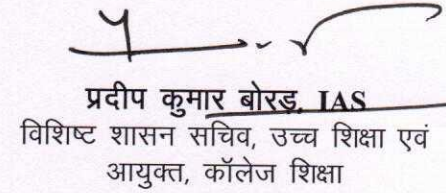 प्रदीप कुमार बोरड़, IAS
विशिष्ट शासन सचिव, उच्च शिक्षा एवं
आयुक्त, कॉलेज शिक्षा